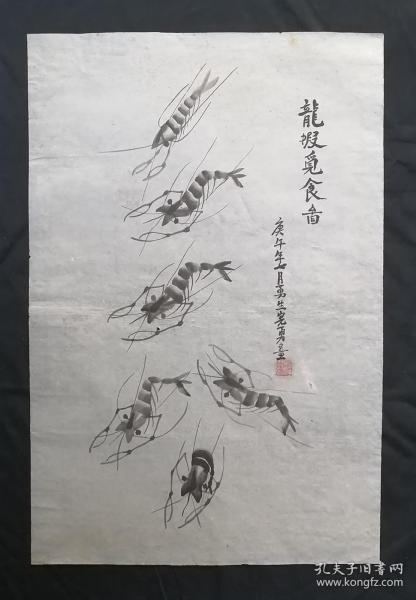 龍蝦覓食畐
庚午年七月勇生党勇畫
孔夫子旧書网
www.kongfz.com